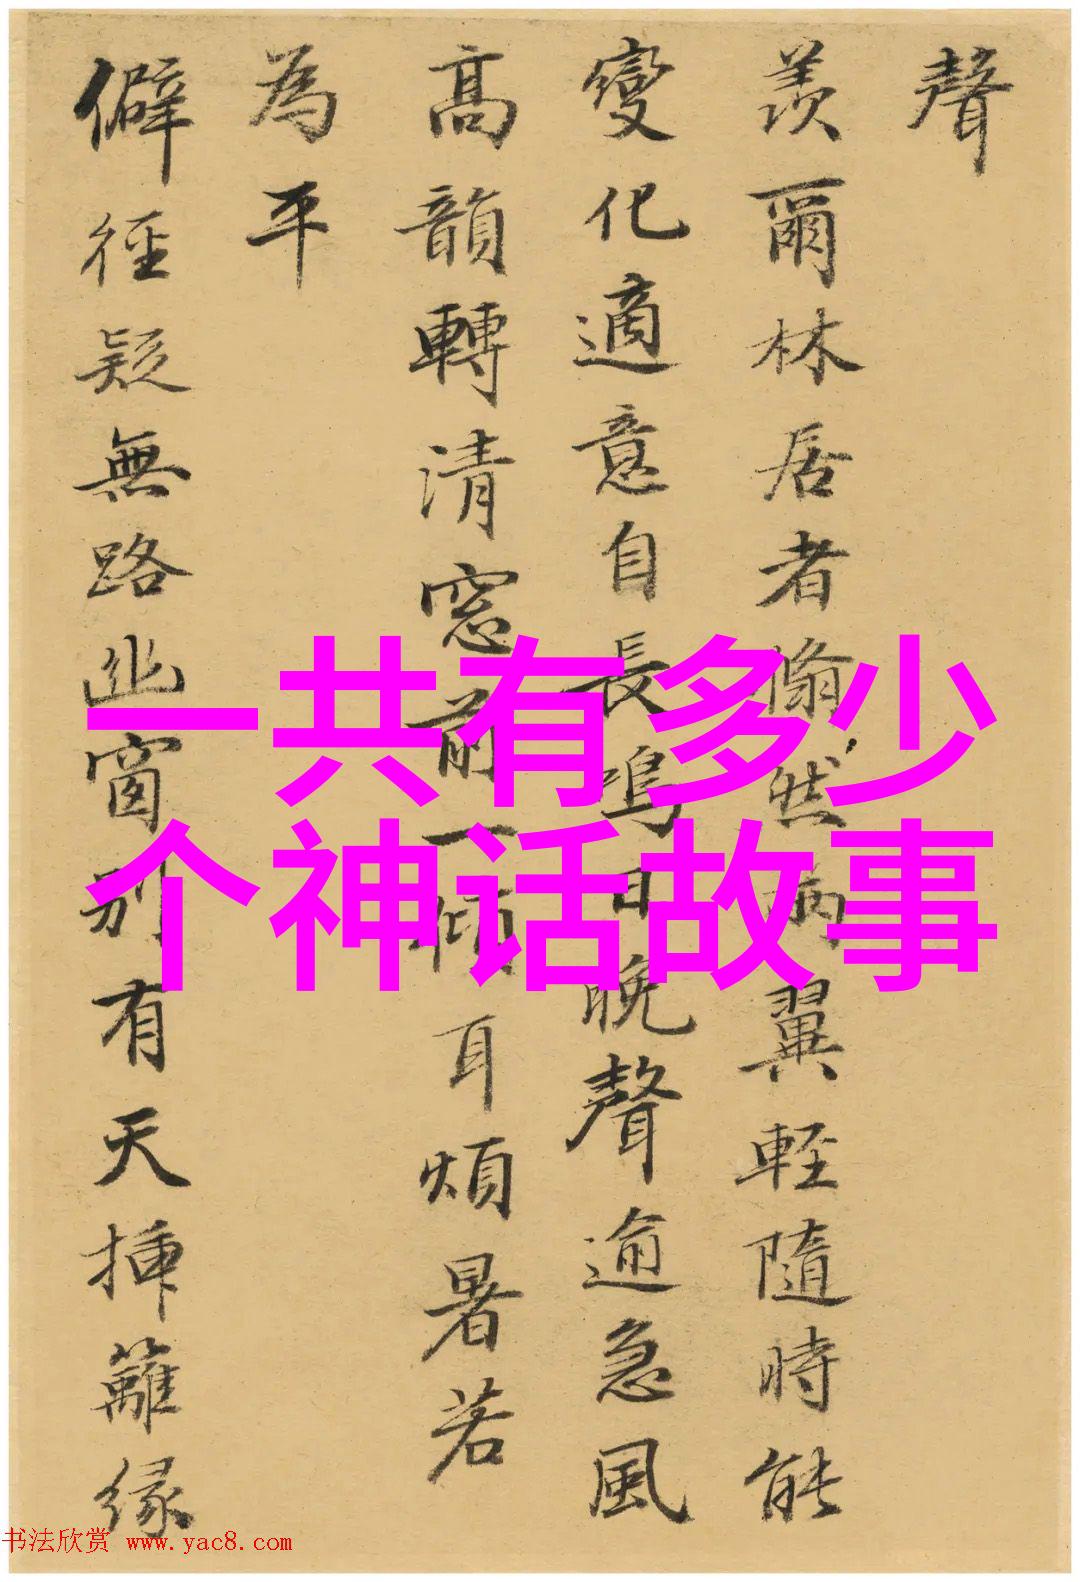 聲
羨爾林居者翛然病翼輕隨時能
變化適意自長鳴日晚聲逾急風
高韻轉清窓前一傾耳煩暑若
為平
僻徑疑無路幽窗別有天插籬緣
一共有多少
个神话故事
书法欣赏 www.yac8.com